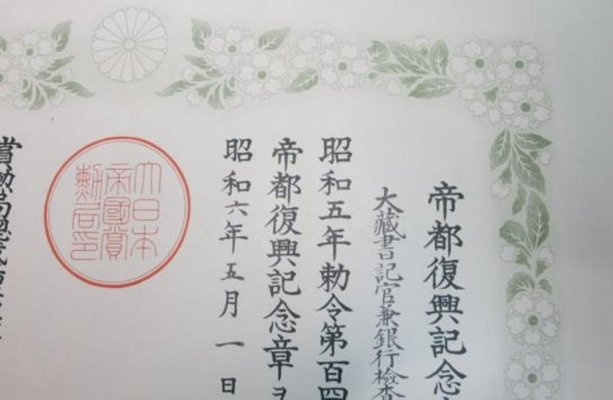 帝都復興記念
大藏書記官兼銀行檢査
昭和五年勅令第百四
帝都復興記念章ヲ
昭和六年五月一日
大日本
帝國賞
勲局印